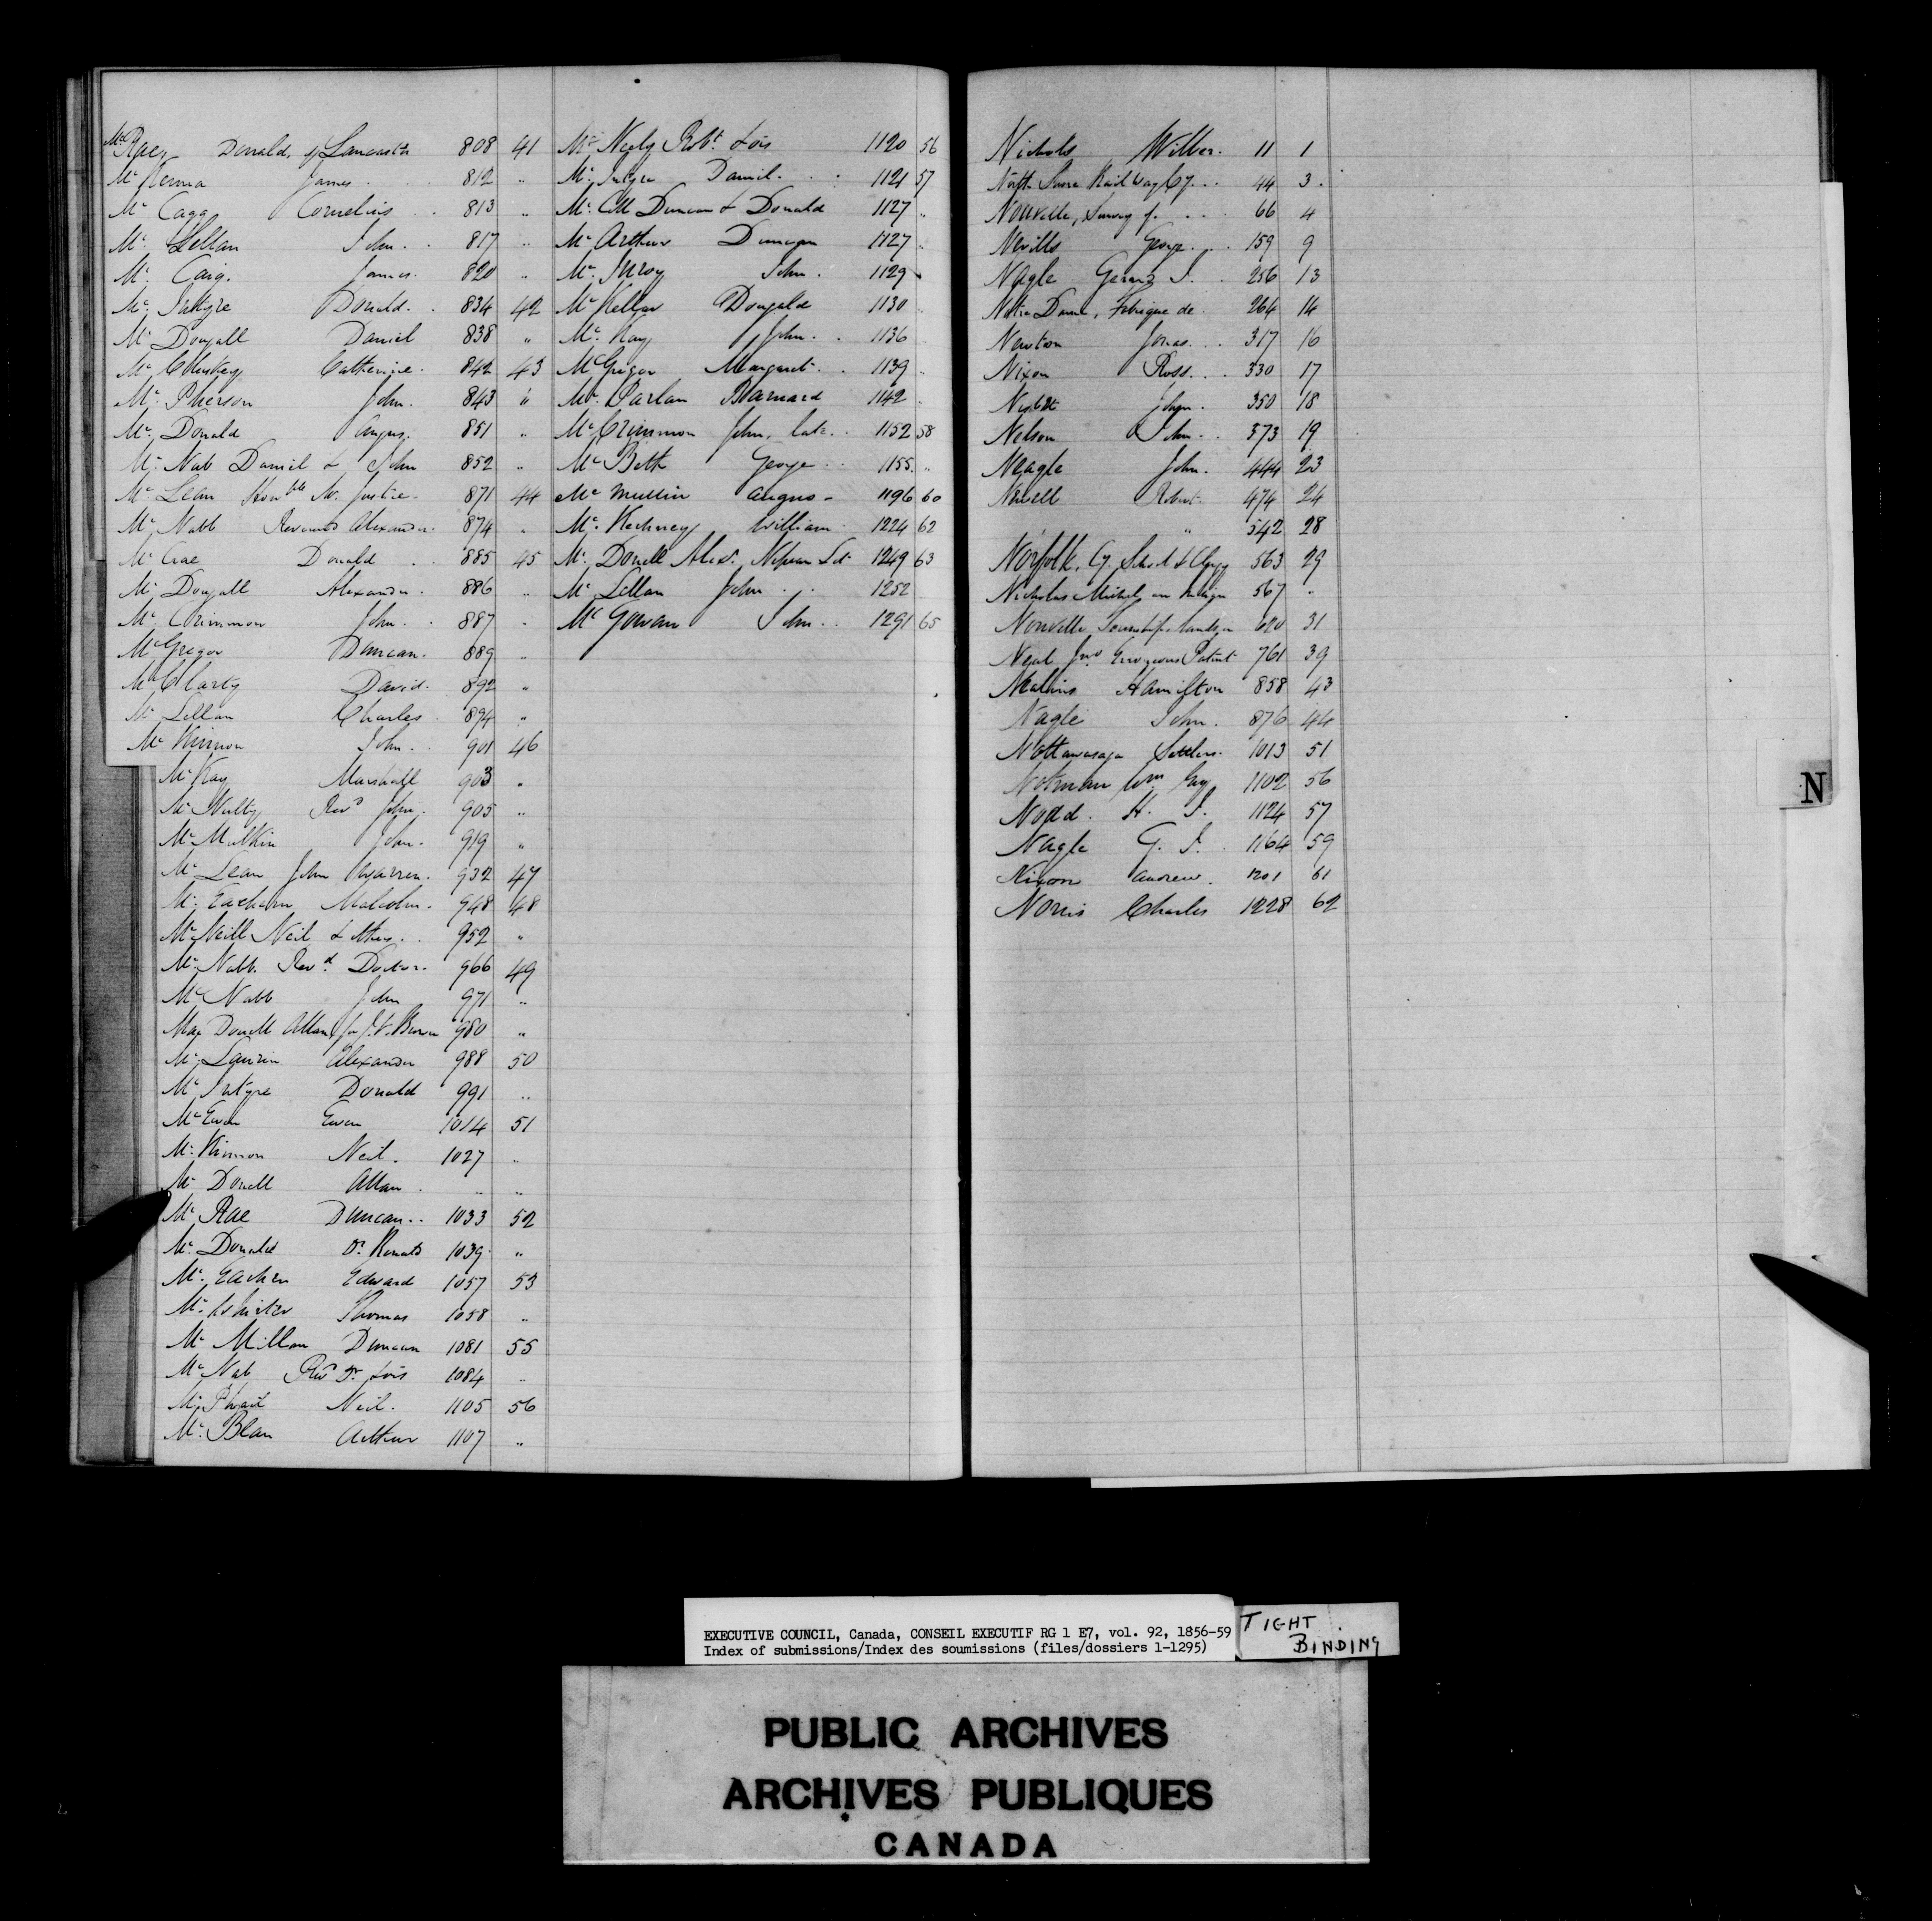 McRae, Donald, of Lancaster 808 41
Mc Kenna James 812 "
Mc Cagg Cornelius 813 "
Mc Lellan John 817 "
Mc Caig James 820 "
Mc Intyre Donald 834 42
Mc Dougall Daniel 838 "
Mc Cluskey Catherine 842 43
Mc Pherson John 843 "
Mc Donald Angus 851 "
Mc Nab Daniel & John 852 "
Mc Lean Honble Mr. Justice 871 44
Mc Nabb Reverend Alexander 874 "
Mc Crae Donald 885 45
Mc Dougall Alexander 886 "
Mc Crimmon John 887 "
McGregor Duncan 889 "
Mc Clarty David 892 "
Mc Lellan Charles 894 "
Mc Kinnon John 901 46
Mc Kay Marshall 903 "
Mc Nulty Revd John 905 "
Mc Mulkin John 919 "
Mc Lean John Warren 932 47
Mc Eachern Malcolm 948 48
McNeill Neil & others 952 "
Mc Nabb Revd Doctor 966 49
Mc Nabb John 971 "
Mac Donell Allan for J. V. Brown 980 "
Mc Laurin Alexander 988 50
Mc Intyre Donald 991 "
Mc Ewen Ewen 1014 51
Mc Kinnon Neil 1027 "
Mc Donell Allan " "
Mc Rae Duncan 1033 52
Mc Donald Dr. Ronald 1039 "
Mc Eachen Edward 1057 53
Mc Whirter Thomas 1058 "
Mc Millan Duncan 1081 55
Mc Nab Revd Dr. 1084 "
Mc Phail Neil 1105 56
Mc Blan Arthur 1107 "
Mc Neely Robt 1120 56
Mc Intyre Daniel 1121 57
Mc Coll Duncan & Donald 1127 "
Mc Arthur Duncan 1127 "
Mc Inroy John 1129
Mc Kellar Dougald 1130 "
Mc Kay John 1136
McGregor Margaret 1139 "
Mc Parlan Barnard 1142
Mc Crimmon John, late 1152 58
Mc Beth George 1155 "
Mc Mullin Angus 1196 60
Mc Kechney William 1224 62
Mc Donell Alexr. Nepean 1249 63
Mc Lellan John 1252
Mc Gowan John 1291 65
Nichols Wilber 11 1
North Shore Railway Cy 44 3
Nouvelle, Survey of 66 4
Nevills George 159 9
Nagle Gerard J. 256 13
Notre Dame, Fabrique de 264 14
Newton Jonas 317 16
Nixon Ross 330 17
Nesbitt John 350 18
Nelson John 373 19
Neagle John 444 23
Newell Robert 474 24
" 542 28
Norfolk, Cy. School & Clergy 563 29
Nicholas Michel, an Indian 567 "
Nouvelle Township, lands in 620 31
Neal Jno Erroneous Patent 761 39
Hamilton 858 43
Nagle John 876 44
Nottawasaga Settlers 1013 51
Notman Wm Esq 1102 56
Nodd. H. J. 1124 57
Nagle G. J. 1164 59
Nixon Andrew 1201 61
Norris Charles 1228 62
N
EXECUTIVE COUNCIL, Canada, CONSEIL EXECUTIF RG 1 E7, vol. 92, 1856-59
Index of submissions/Index des soumissions (files/dossiers 1-1295)
TIGHT
BINDING
PUBLIC ARCHIVES
ARCHIVES PUBLIQUES
CANADA